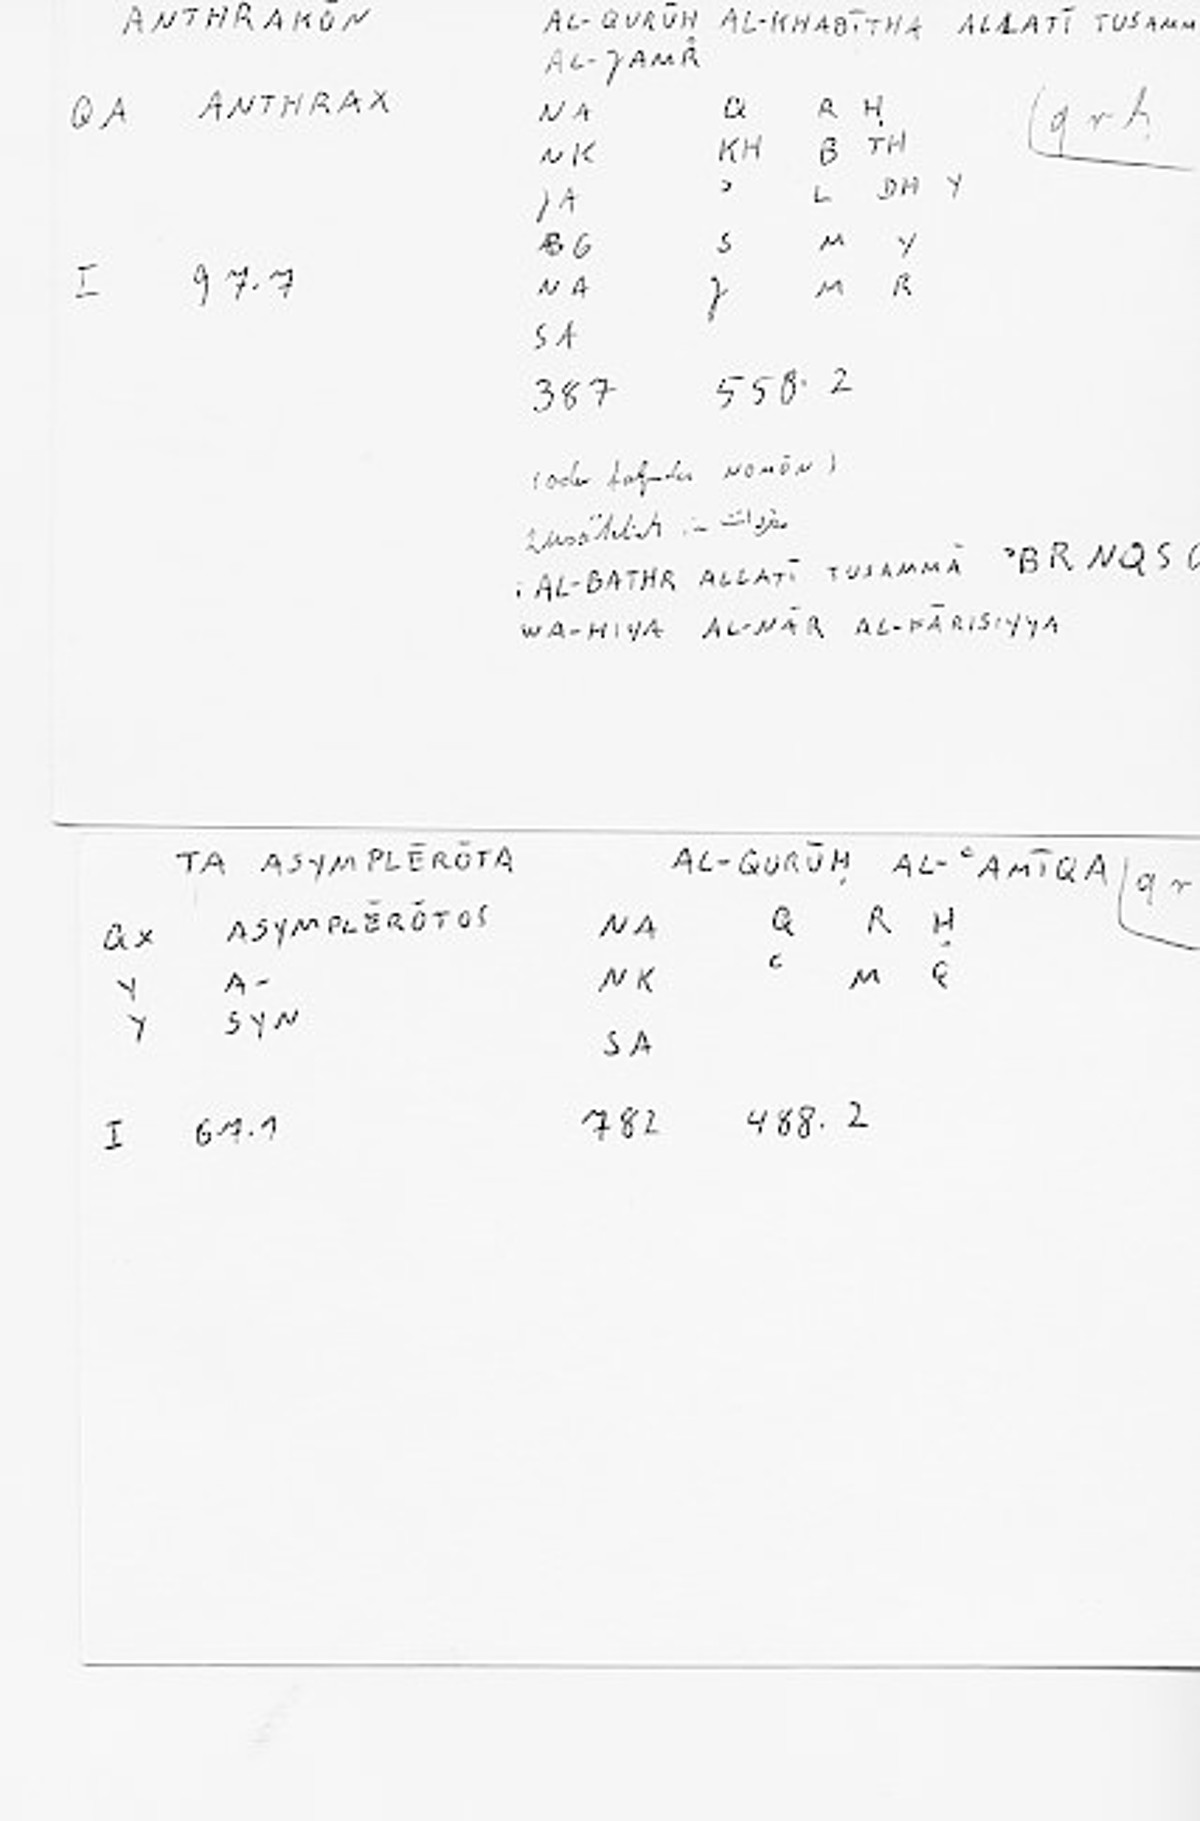 ANTHRAKŌN AL-QURŪḤ AL-KHABĪTHA ALLATĪ TUSAMM
AL-JAMR
QA ANTHRAX NA Q R Ḥ qrḥ
NK KH B TH
JA ʾ L DH Y
BG S M Y
I 97.7 NA J M R
SA
387 558.2
(oder NOMŌN)
zusätzlich in
: AL-BATHR ALLATĪ TUSAMMĀ ʾBRNQS
WA-HIYA AL-NĀR AL-FĀRISIYYA
TA ASYMPLĒRŌTA AL-QURŪḤ AL-ʿAMĪQA qr
QX ASYMPLĒRŌTOS NA Q R Ḥ
Y A- NK ʿ M Q
Y SYN
SA
I 67.1 782 488.2